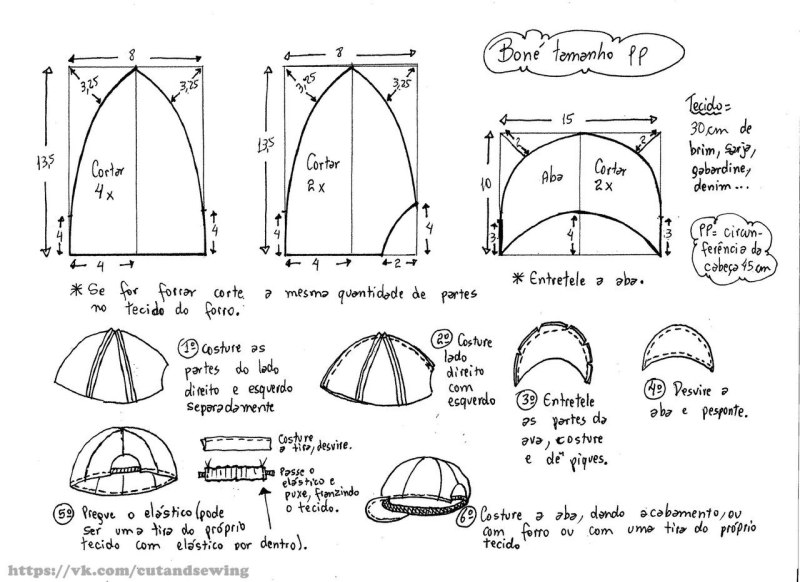 Boné tamanho PP
8
3,25
3,25
13,5
Cortar
4x
4
4
4
8
3,25
3,25
13,5
Cortar
2x
4
4
4
2
15
2
2
10
Aba
Cortar
2x
3
4
3
Tecido=
30cm de
brim, sarja,
gabardine,
denim...
PP= circun-
ferência da
cabeça 45cm
* Se for forrar corte a mesma quantidade de partes
no tecido do forro.
* Entretele a aba.
1º Costure as
partes do lado
direito e esquerdo
separadamente
2º Costure
lado
direito
com
esquerdo
3º Entretele
as partes da
ava, costure
e dê piques.
4º Desvire a
aba e pesponte.
Costure
a tira, desvire.
Passe o
elástico e
puxe, franzindo
o tecido.
5º Pregue o elástico (pode
ser uma tira do próprio
tecido com elástico por dentro).
6º Costure a aba, dando acabamento, ou
com forro ou com uma tira do próprio
tecido
https://vk.com/cutandsewing